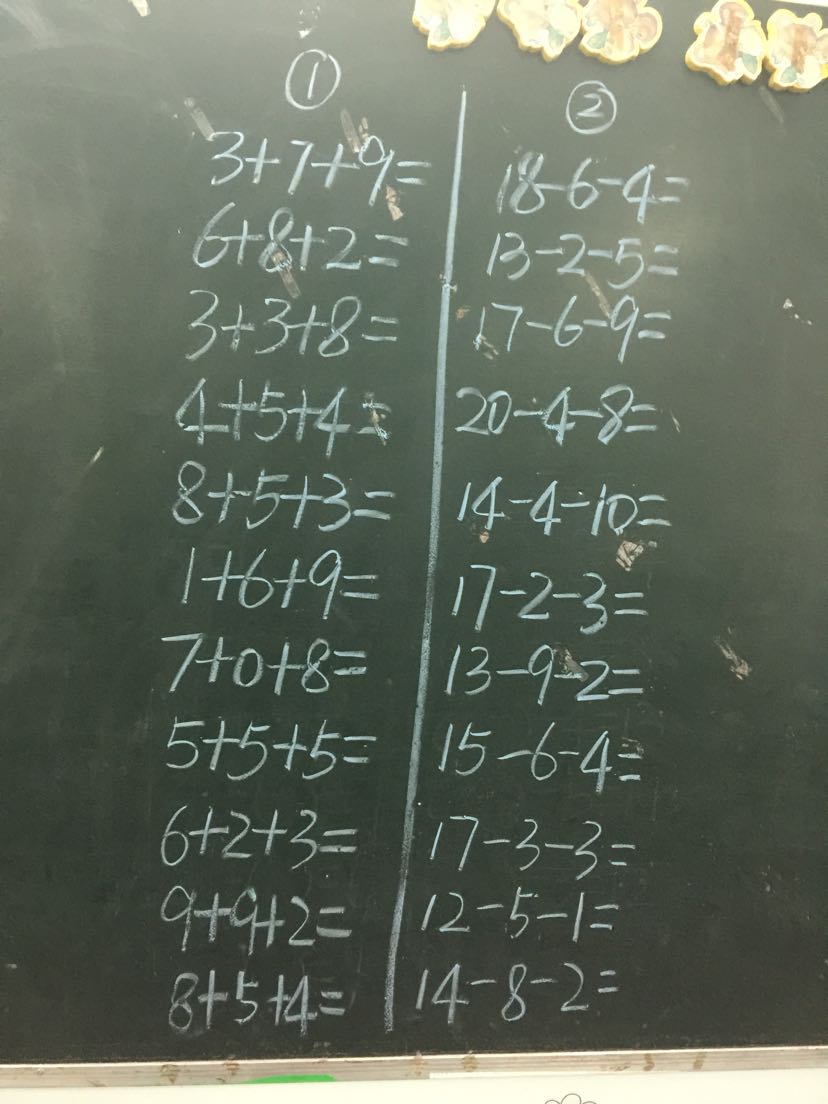 ①
3+7+9=
6+8+2=
3+3+8=
4+5+4=
8+5+3=
1+6+9=
7+0+8=
5+5+5=
6+2+3=
9+9+2=
8+5+4=
②
18-6-4=
13-2-5=
17-6-9=
20-4-8=
14-4-10=
17-2-3=
13-9-2=
15-6-4=
17-3-3=
12-5-1=
14-8-2=